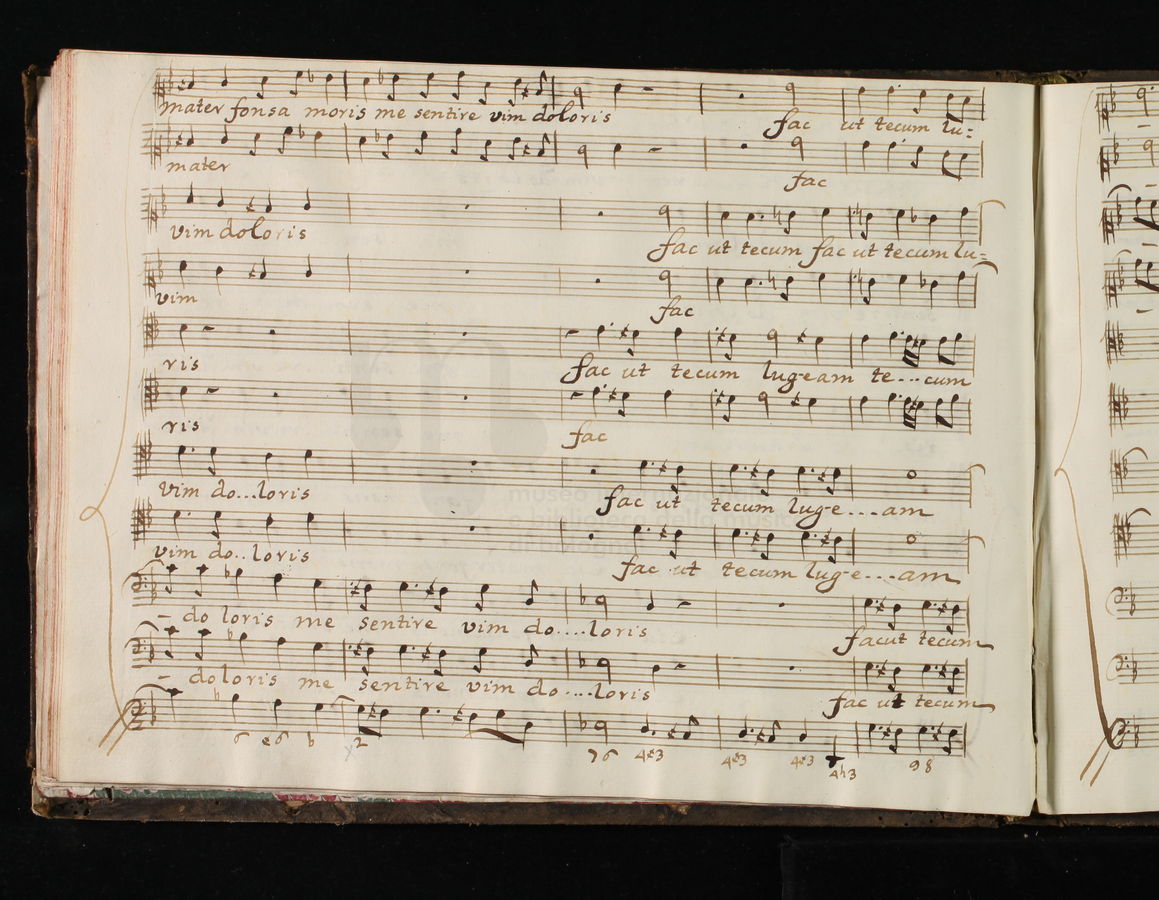 mater fonsa moris me sentire vim doloris fac ut tecum lu=
mater fac
vim doloris fac ut tecum fac ut tecum lu=
vim fac
ris fac ut tecum lugeam te...cum
ris fac
vim do...loris fac ut tecum luge...am
vim do..loris fac ut tecum luge...am
- do loris me sentire vim do....loris facut tecum
- doloris me sentire vim do....loris fac ut tecum
6 6 b 2 76 4#3 4#3 4#3 4♮3 98